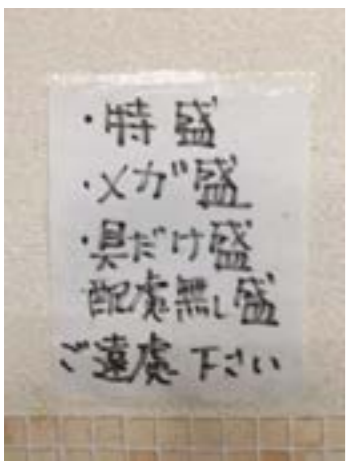 ・特盛
・メガ盛
・具だけ盛
配慮無し盛
ご遠慮下さい